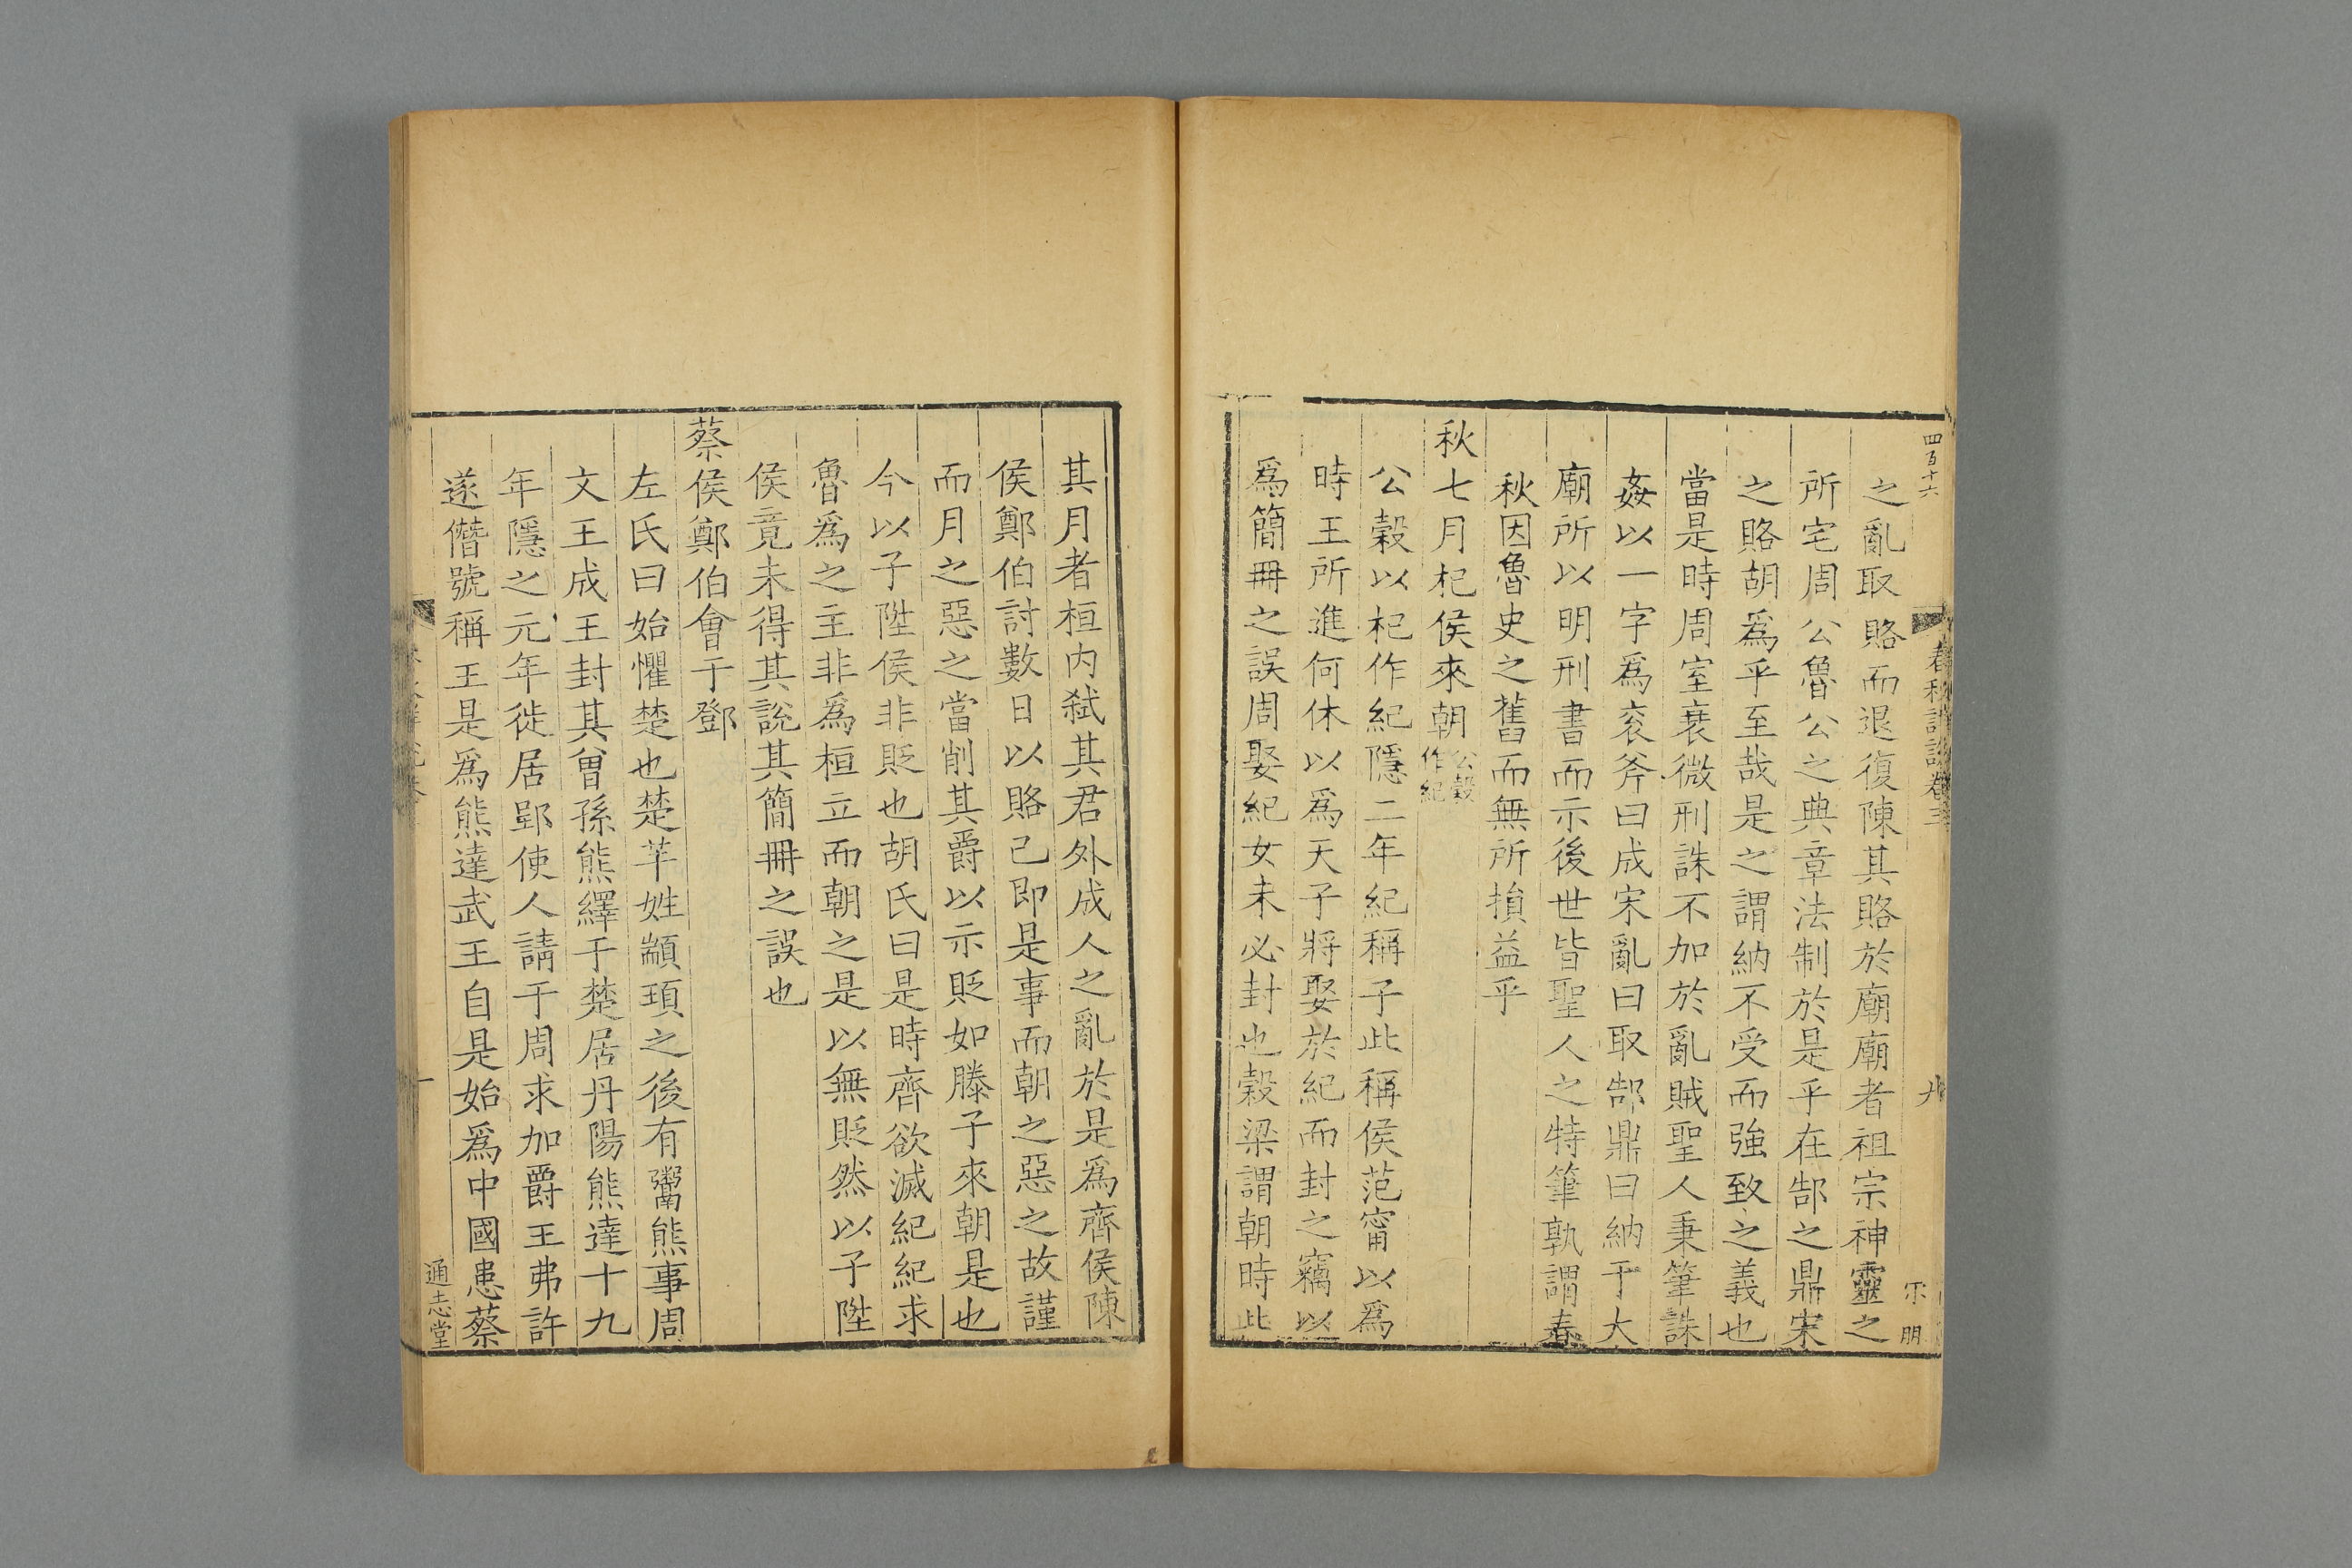 四百十六
春秋詳說卷三
之亂取賂而退復陳其賂於廟廟者祖宗神靈之
所宅周公魯公之典章法制於是乎在郜之鼎宋
之賂胡爲乎至哉是之謂納不受而強致之義也
當是時周室衰微刑誅不加於亂賊聖人秉筆誅
姦以一字爲衮斧曰成宋亂曰取郜鼎曰納于大
廟所以明刑書而示後世皆聖人之特筆孰謂春
秋因魯史之舊而無所損益乎
秋七月杞侯來朝公穀作紀
公穀以杞作紀隱二年紀稱子此稱侯范甯以爲
時王所進何休以爲天子將娶於紀而封之竊以
爲簡冊之誤周娶紀女未必封也穀梁謂朝時此
其月者桓内弑其君外成人之亂於是爲齊侯陳
侯鄭伯討數日以賂己即是事而朝之惡之故謹
而月之惡之當削其爵以示貶如滕子來朝是也
今以子陞侯非貶也胡氏曰是時齊欲滅紀紀求
魯爲之主非爲桓立而朝之是以無貶然以子陞
侯竟未得其說其簡冊之誤也
蔡侯鄭伯會于鄧
左氏曰始懼楚也楚芊姓顓頊之後有鬻熊事周
文王成王封其曾孫熊繹于楚居丹陽熊達十九
年隱之元年徙居郢使人請于周求加爵王弗許
遂僭號稱王是爲熊達武王自是始爲中國患蔡
通志堂